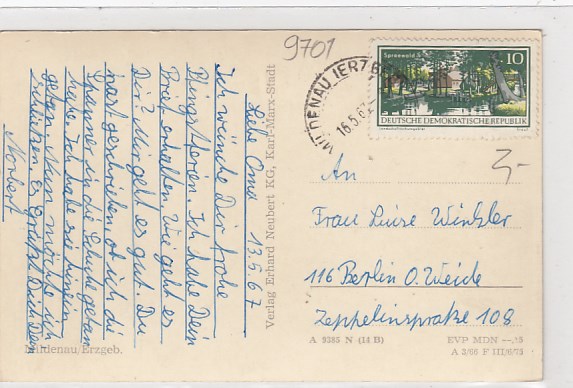 9701
MILDENAU (ERZGEB
16.5.67
Spreewald
10
DEUTSCHE DEMOKRATISCHE REPUBLIK
Landschaftsschutzgebiet
Liebe Oma 13.5.67
Ich wünsche Dir frohe
Pfingstferien. Ich habe Dein
Brief erhalten. Wie geht es
Dir? Mir geht es gut. Du
hast geschrieben, ob ich die
in die Schule getan
habe. Ich habe sie hinein
getan. Nun möchte ich
schließen. Es grüßt Dich Dein
Norbert
Verlag Erhard Neubert KG, Karl-Marx-Stadt
An
Frau Luise Winkler
116 Berlin O. Weide
Zeppelinstraße 108
Mildenau/Erzgeb.
A 9385 N (14 B)
EVP MDN —,15
A 3/66 F III/6/75